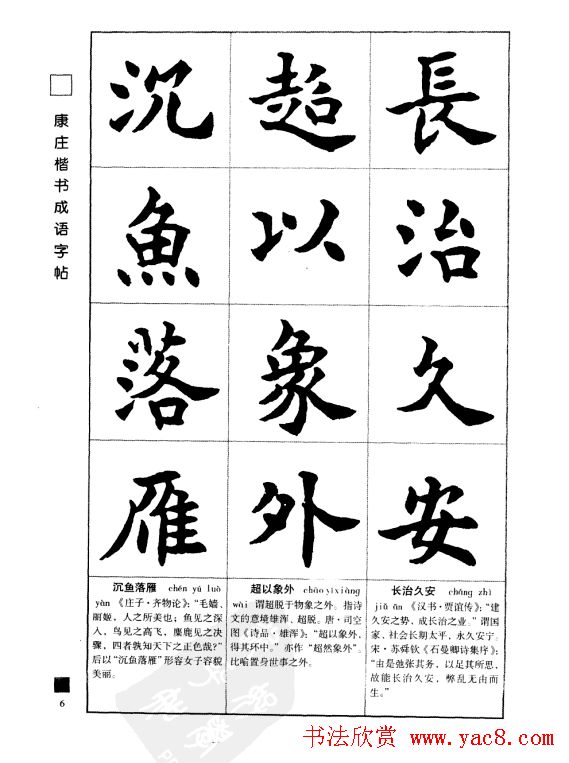 康庄楷书成语字帖
長治久安
超以象外
沉魚落雁
长治久安 cháng zhì
jiǔ ān 《汉书·贾谊传》：“建
久安之势，成长治之业。”谓国
家、社会长期太平，永久安宁。
宋·苏舜钦《石曼卿诗集序》：
“由是弛张其务，以足其所思，
故能长治久安，弊乱无由而
生。”
超以象外 chāo yǐ xiàng
wài 谓超脱于物象之外。指诗
文的意境雄浑、超脱。唐·司空
图《诗品·雄浑》：“超以象外，
得其环中。”亦作“超然象外”。
比喻置身世事之外。
沉鱼落雁 chén yú luò
yàn 《庄子·齐物论》：“毛嫱、
丽姬，人之所美也；鱼见之深
入，鸟见之高飞，麋鹿见之决
骤，四者孰知天下之正色哉？”
后以“沉鱼落雁”形容女子容貌
美丽。
6
书法欣赏 www.yac8.com